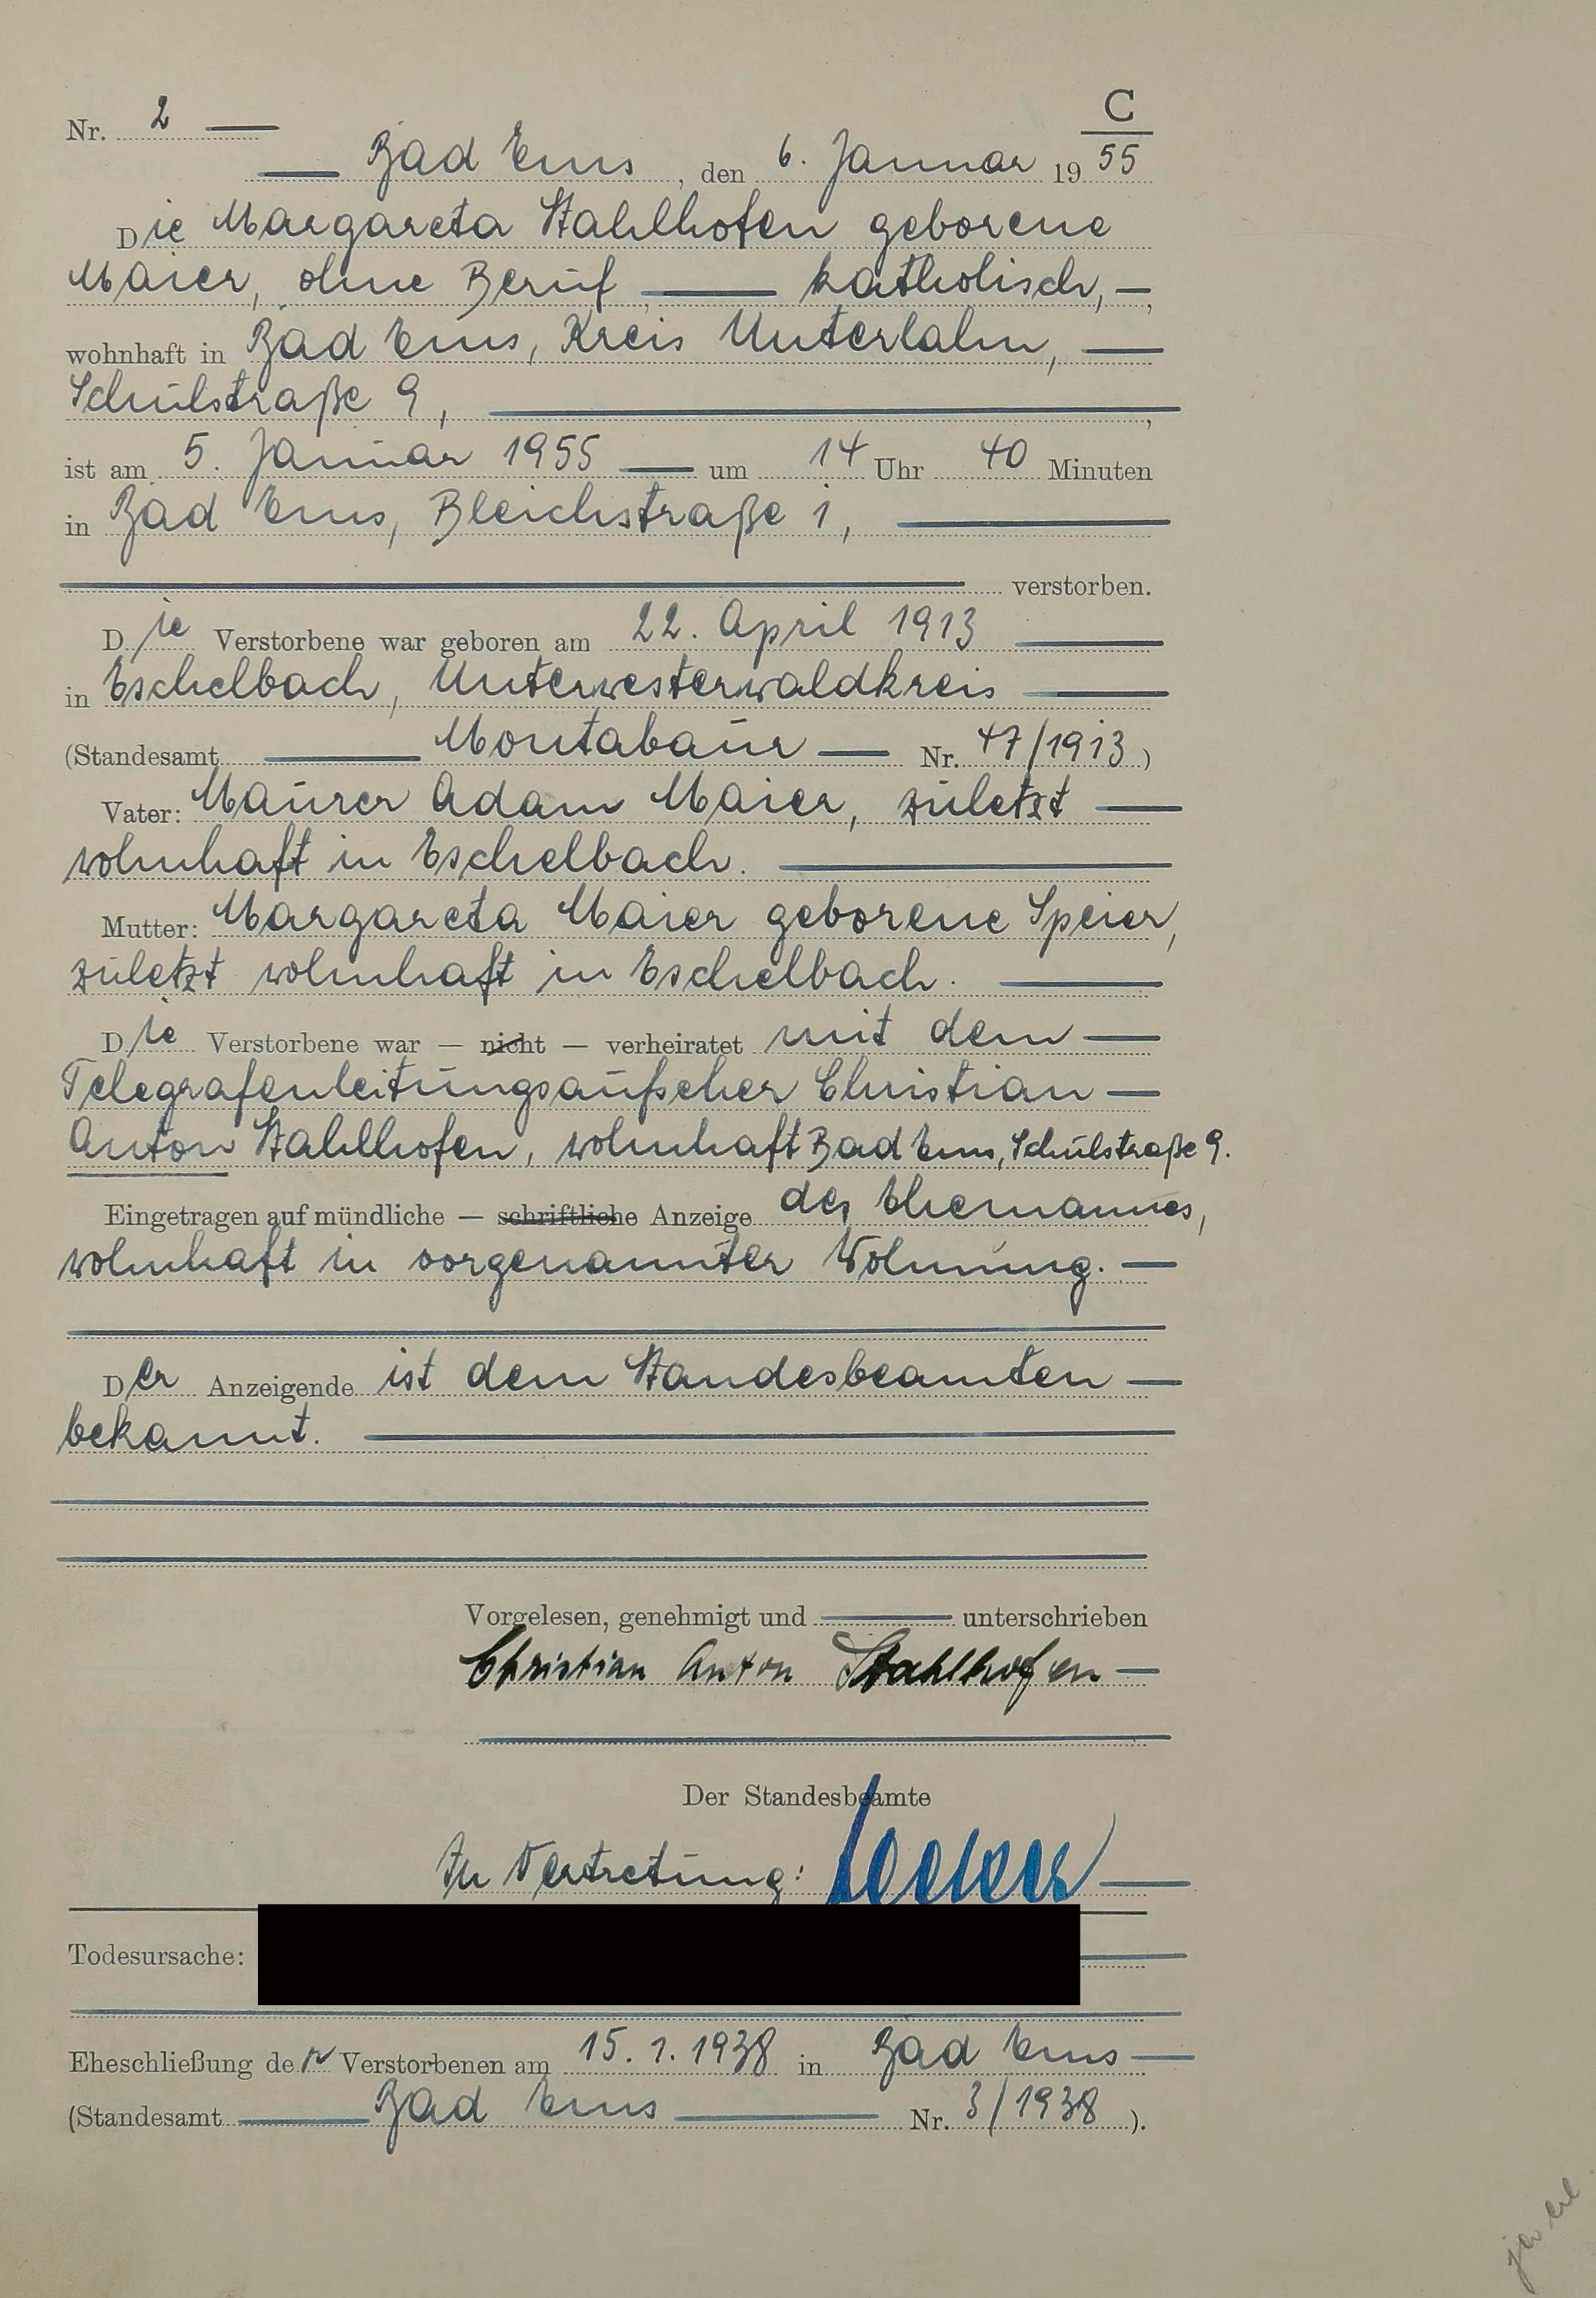 C
Nr. 2
Bad Ems, den 6. Januar 1955
Die Margareta Stahlhofen geborene
Maier, ohne Beruf, katholisch,
wohnhaft in Bad Ems, Kreis Unterlahn,
Schulstraße 9,
ist am 5. Januar 1955 um 14 Uhr 40 Minuten
in Bad Ems, Bleichstraße 1,
verstorben.
Die Verstorbene war geboren am 22. April 1913
in Eschelbach, Unterwesterwaldkreis
(Standesamt Montabaur Nr. 47/1913)
Vater: Maurer Adam Maier, zuletzt
wohnhaft in Eschelbach.
Mutter: Margareta Maier geborene Speier,
zuletzt wohnhaft in Eschelbach.
Die Verstorbene war — nicht — verheiratet mit dem
Telegrafenleitungsaufseher Christian
Anton Stahlhofen, wohnhaft Bad Ems, Schulstraße 9.
Eingetragen auf mündliche — schriftliche Anzeige des Ehemannes,
wohnhaft in vorgenannter Wohnung.
Der Anzeigende ist dem Standesbeamten
bekannt.
Vorgelesen, genehmigt und unterschrieben
Christian Anton Stahlhofen
Der Standesbeamte
In Vertretung:
Todesursache:
Eheschließung der Verstorbenen am 15.1.1938 in Bad Ems
(Standesamt Bad Ems Nr. 3/1938).